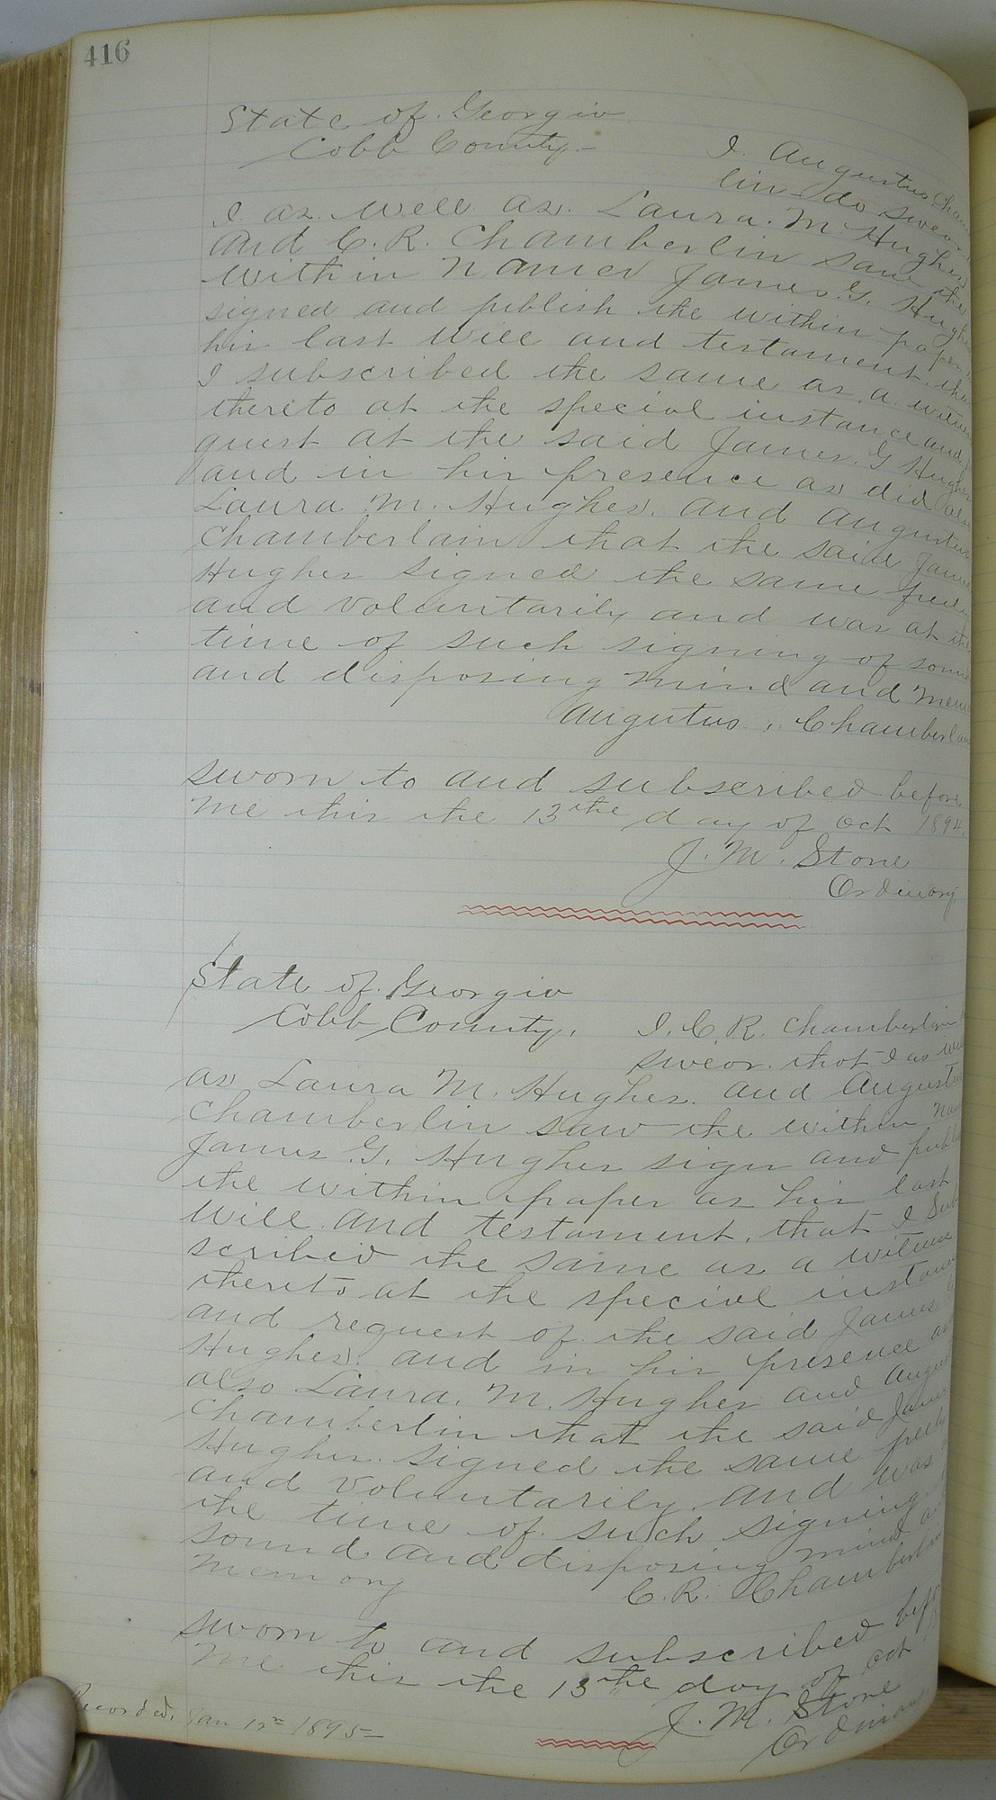 416
State of Georgia
Cobb County-
I Augustus Cham
lin do swear
I as well as Laura M. Hughes
and C. R. Chamberlin saw the
within named James G. Hughes
signed and publish the within paper
his last will and testament, that
I subscribed the same as a witness
thereto at the special instance and
quest at the said James G Hughes
and in his presence as did also
Laura M. Hughes. and Augustus
Chamberlain that the said James
Hughes signed the same freely
and voluntarily and was at the
time of such signing of sound
and disposing mind and mem
Augutus Chamberlain
sworn to and subscribed before
me this the 13the day of Oct 1894.
J. M. Stone
Ordinary
State of Georgia
Cobb County. I. C. R. Chamberlin
swear that I as well
as Laura M. Hughes. and August
Chamberlin saw the within na
James G. Hughes sign and publ
the within paper as his last
will and testament, that I sub
scribed the same as a witness
thereto at the special instance
and request of the said James
Hughes. and in his presence as
also Laura. M. Hughes and Augus
Chamberlin that the said James
Hughes signed the same freely
and voluntarily and was
the time of such signing
sound and disposing mind a
memory
C. R. Chamberlin
sworn to and subscribed bef
me this the 13the day of Oct
J. M. Stone
Ordinar
Recorded, Jan 1895-